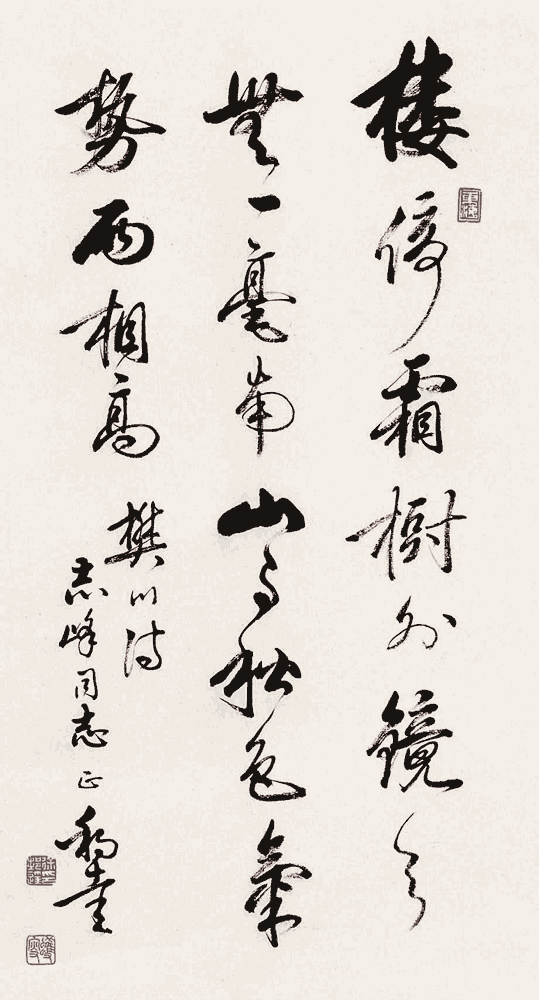 樓倚霜樹外鏡天
無一毫南山与秋色氣
勢兩相高
樊川詩
志峰同志正